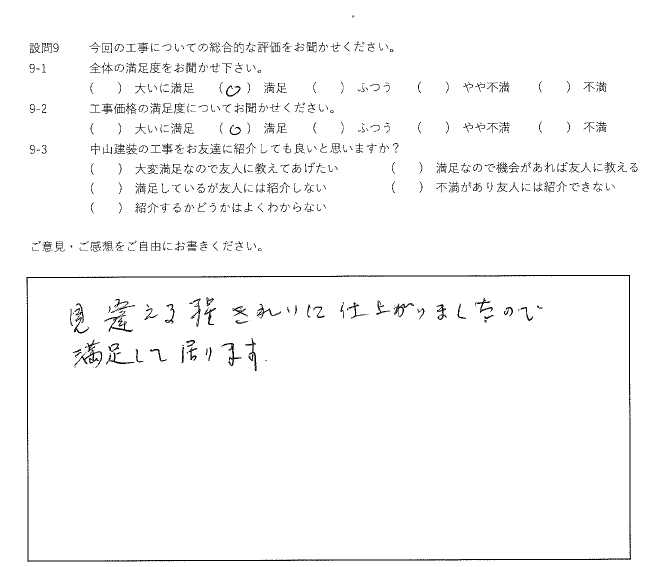 設問9 今回の工事についての総合的な評価をお聞かせください。
9-1 全体の満足度をお聞かせ下さい。
( ) 大いに満足 (○) 満足 ( ) ふつう ( ) やや不満 ( ) 不満
9-2 工事価格の満足度についてお聞かせください。
( ) 大いに満足 (○) 満足 ( ) ふつう ( ) やや不満 ( ) 不満
9-3 中山建装の工事をお友達に紹介しても良いと思いますか？
( ) 大変満足なので友人に教えてあげたい ( ) 満足なので機会があれば友人に教える
( ) 満足しているが友人には紹介しない ( ) 不満があり友人には紹介できない
( ) 紹介するかどうかはよくわからない
ご意見・ご感想をご自由にお書きください。
見違える程きれいに仕上がりましたので
満足して居ります.